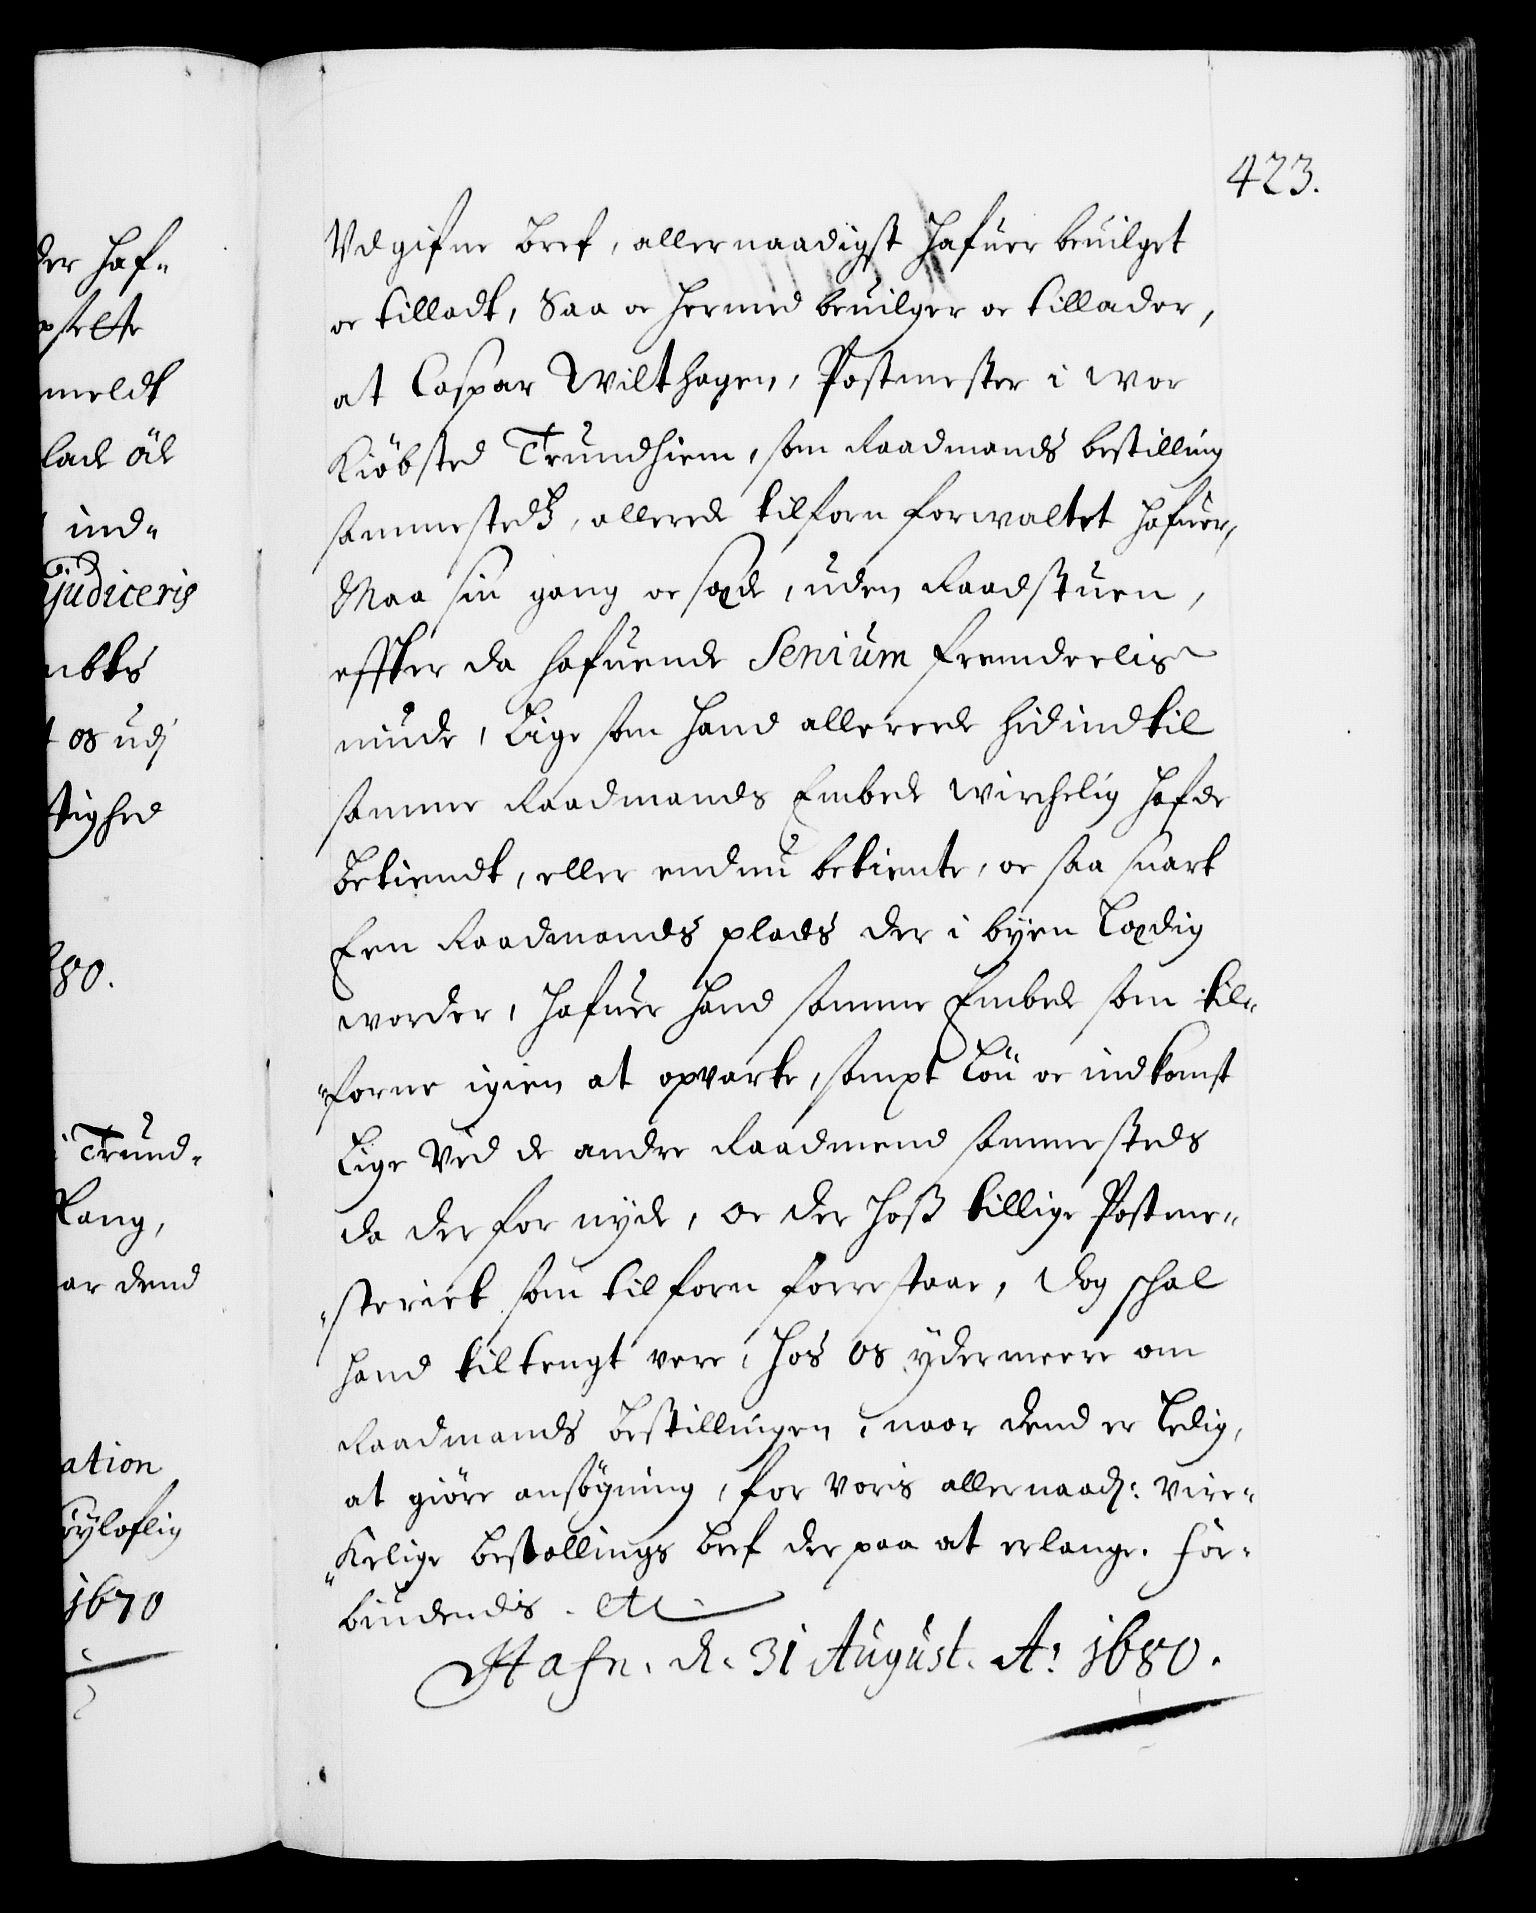 423.
der haf-
meldt
ind-
judiceris
os udj
tighed
80.
i Trund-
ar dend
ation
1670
Vdgifne bref, allernaadigst hafuer beuilget
oc tilladt, Saa oc hermed beuilger oc tillader,
at Caspar Wilthagen, Postmester i wor
Kiöbsted Trundhiem, som Raadmands bestilling
sammestedz, allerede tilforn forwaltet hafuer,
Maa sin gang oc sæde, uden Raadstuen,
effter da hafuende Senium fremdeelis
niude, Lige som hand allereede hidindtil
samme Raadmands Embede wirchelig hafde
bekiendt, eller endnu bekiente, oc saa snart
Een Raadmands plads der i byen Lædig
worder, hafuer hand samme Embede som til-
"forne igien at opvarte, sampt Lön oc indkomst
Lige ved de andre Raadmend sammesteds
da derfor nyde, oc der hoß tillige Postme-
"steriet som tilforn forrestaae, dog schal
hand tiltengt vere, hos os ydermeere om
Raadmands bestillingen, naar dend er Ledig,
at giöre ansögning, for voris allernaad: vire-
"kelige bestallings bref der paa at erlange. For-
biudendis. etc.
Hafn. d. 31 August. Aº 1680.